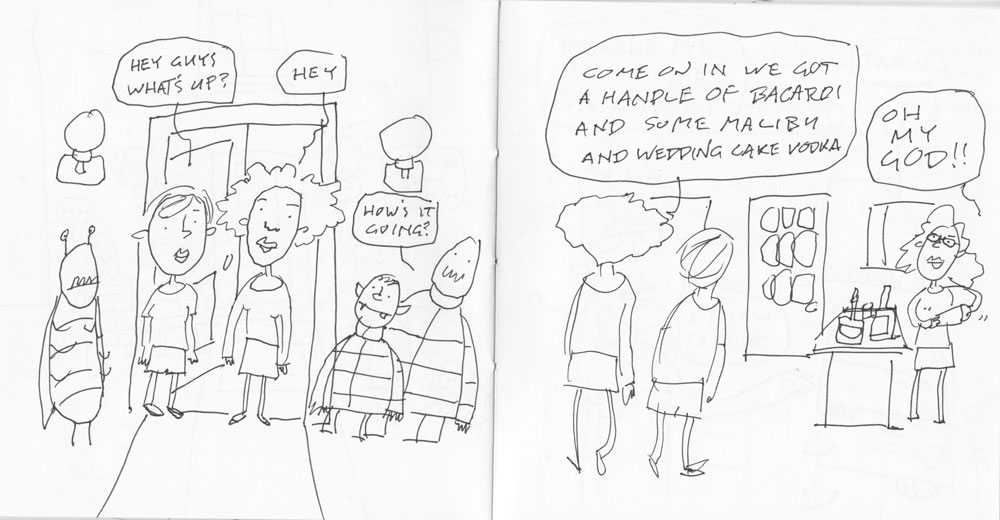 HEY GUYS
WHAT'S UP?
HEY
HOW'S IT
GOING?
COME ON IN WE GOT
A HANDLE OF BACARDI
AND SOME MALIBU
AND WEDDING CAKE VODKA
OH
MY
GOD!!